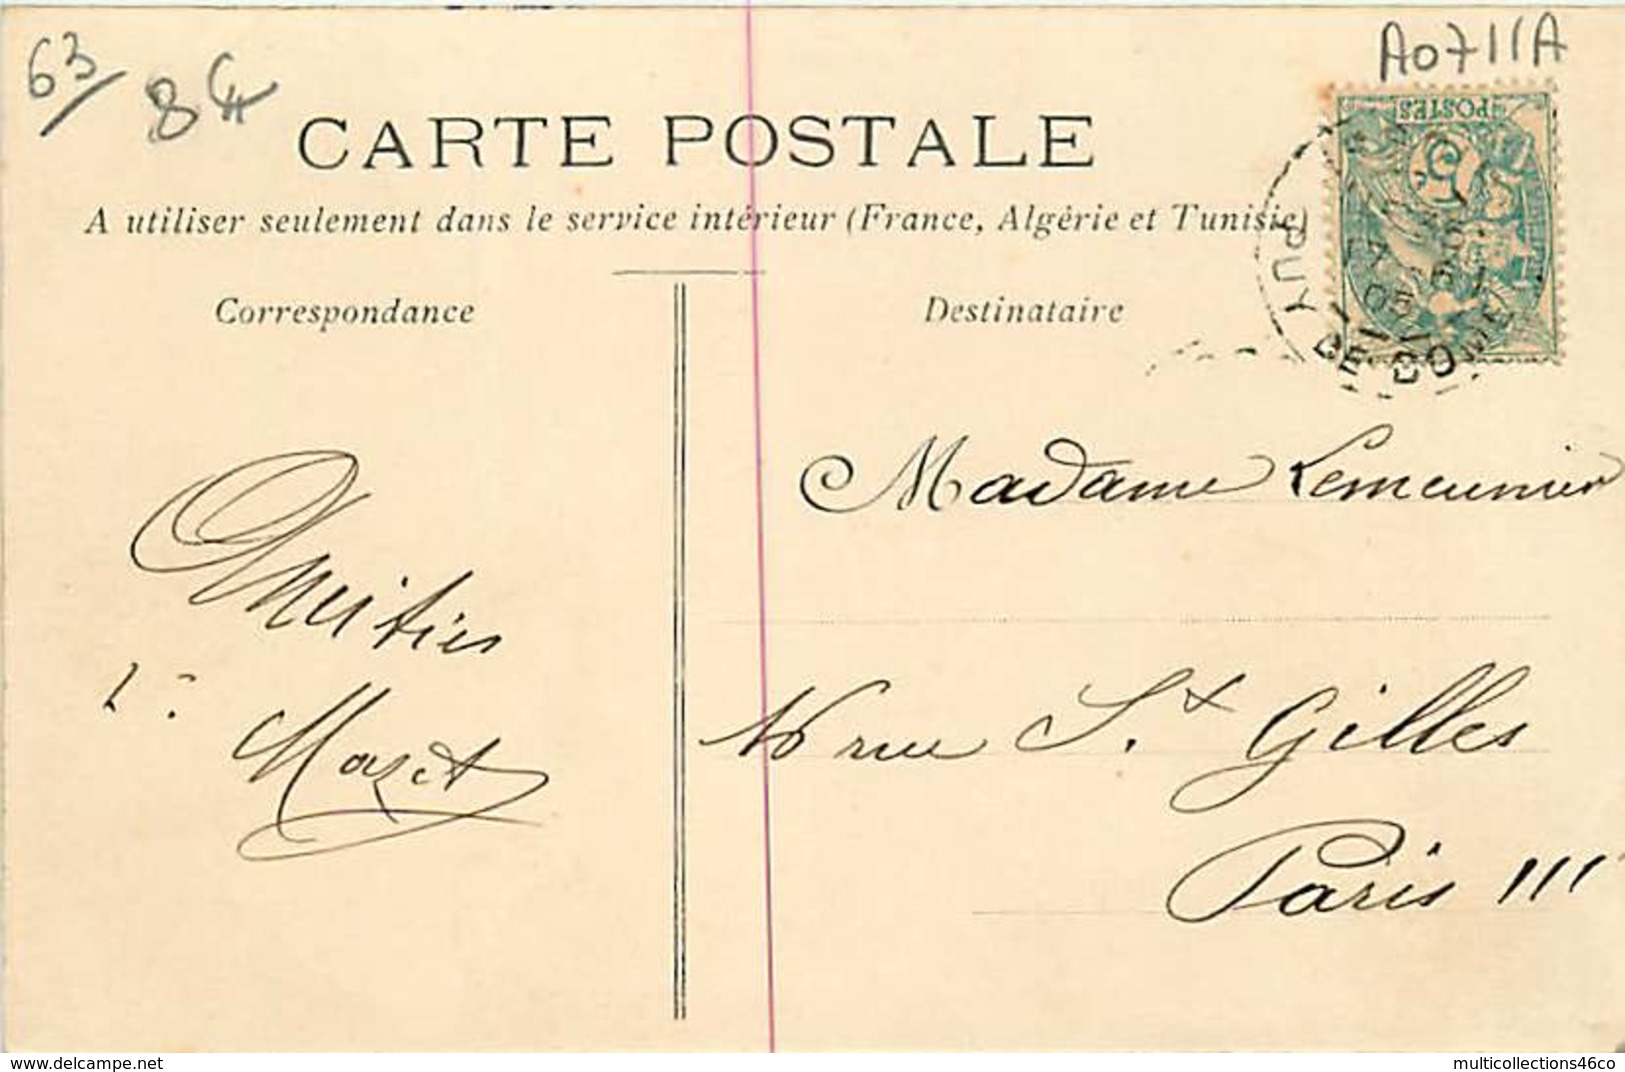 63
A0711A
CARTE POSTALE
A utiliser seulement dans le service intérieur (France, Algérie et Tunisie)
POSTES
5
PUY DE DOME
Correspondance
Destinataire
Madame Lemeunier
Amitiés
Mazet
16 rue St Gilles
Paris III
delcampe.net
multicollections46co